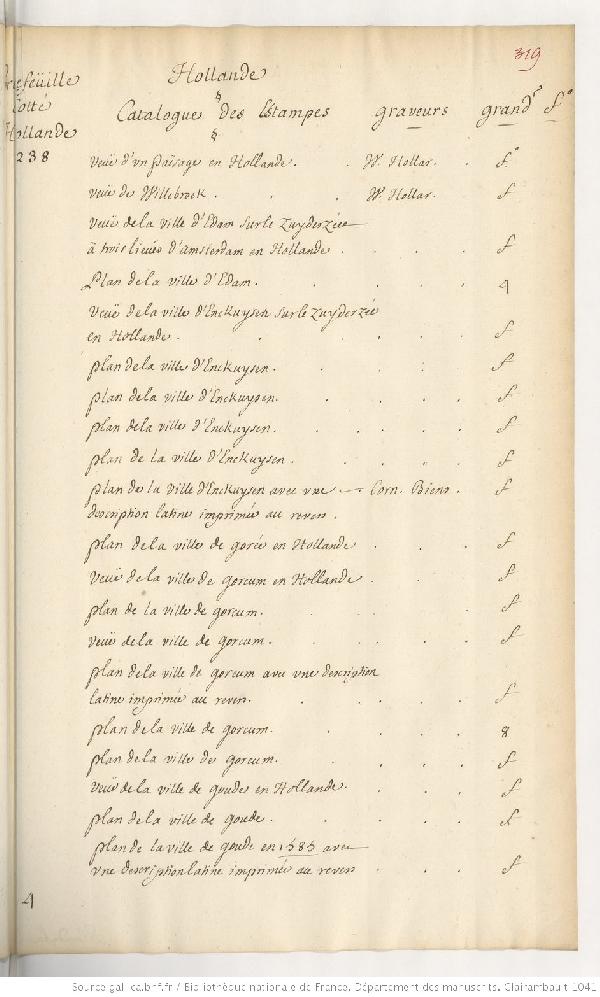 319
Hollande
feüille
Cotté
Hollande
238
Catalogue des Estampes graveurs grandr fo
Veüe d'vn païsage en Hollande. W. Hollar. fo
veüe de Willebroek. W. Hollar. f
Veüe de la ville d'Edam sur le Zuyderzée
à trois lieües d'amsterdam en Hollande. f
Plan de la ville d'Edam. 4
Veüe de la ville d'Enckuysen sur le Zuyderzée
en Hollande. f
plan de la ville d'Enckuysen. f
plan de la ville d'Enckuysen. f
plan de la ville d'Enckuysen. f
plan de la ville d'Enckuysen. f
plan de la ville d'Enckuysen avec vne Corn. Biens. f
description latine imprimée au revers.
plan de la ville de gorée en Hollande f
Veüe de la ville de gorcum en Hollande. f
plan de la ville de gorcum. f
veüe de la ville de gorcum. f
plan de la ville de gorcum avec vne description
latine imprimée au revers. f
plan de la ville de gorcum. 8
plan de la ville de gorcum. f
Veüe de la ville de goude en Hollande. f
plan de la ville de goude. f
plan de la ville de goude en 1585 avec
vne description latine imprimée au revers f
4
Source gallica.bnf.fr / Bibliothèque nationale de France. Département des manuscrits. Clairambault 1041